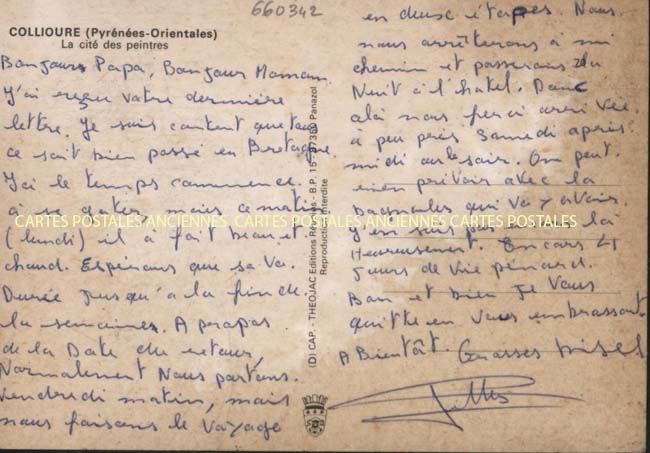 660342
COLLIOURE (Pyrénées-Orientales)
La cité des peintres
Bonjour Papa, Bonjour Maman.
J'ai reçu votre dernière
lettre. Je suis content que tout
ce soit bien passé en Bretagne.
Ici le temps commence
mais ce matin
(lundi) il a fait beau et
chaud. Espérons que sa va
Durée jusqu'à la fin de
la semaines. A propos
de la Date du retour,
Normalement Nous partons
vendredi matin, mais
nous faisons le voyage
en deux étapes. Nous
nous arrêterons à mi
chemin et passerons la
Nuit à l'hôtel. Donc
arrivée
à peu près Samedi après
midi ou le soir. On peut
rien prévoir avec la
qui va y avoir
la
Heureusement. Encore 4
jours de vie pénard.
Bon et bien je vous
quitte en vous embrassant.
A Bientôt. Grosses bises
CARTES POSTALES ANCIENNES CARTES POSTALES ANCIENNES CARTES POSTALES
(D) CAP. - THEOJAC Editions - B.P. 15 - 87350 Panazol
Reproduction interdite